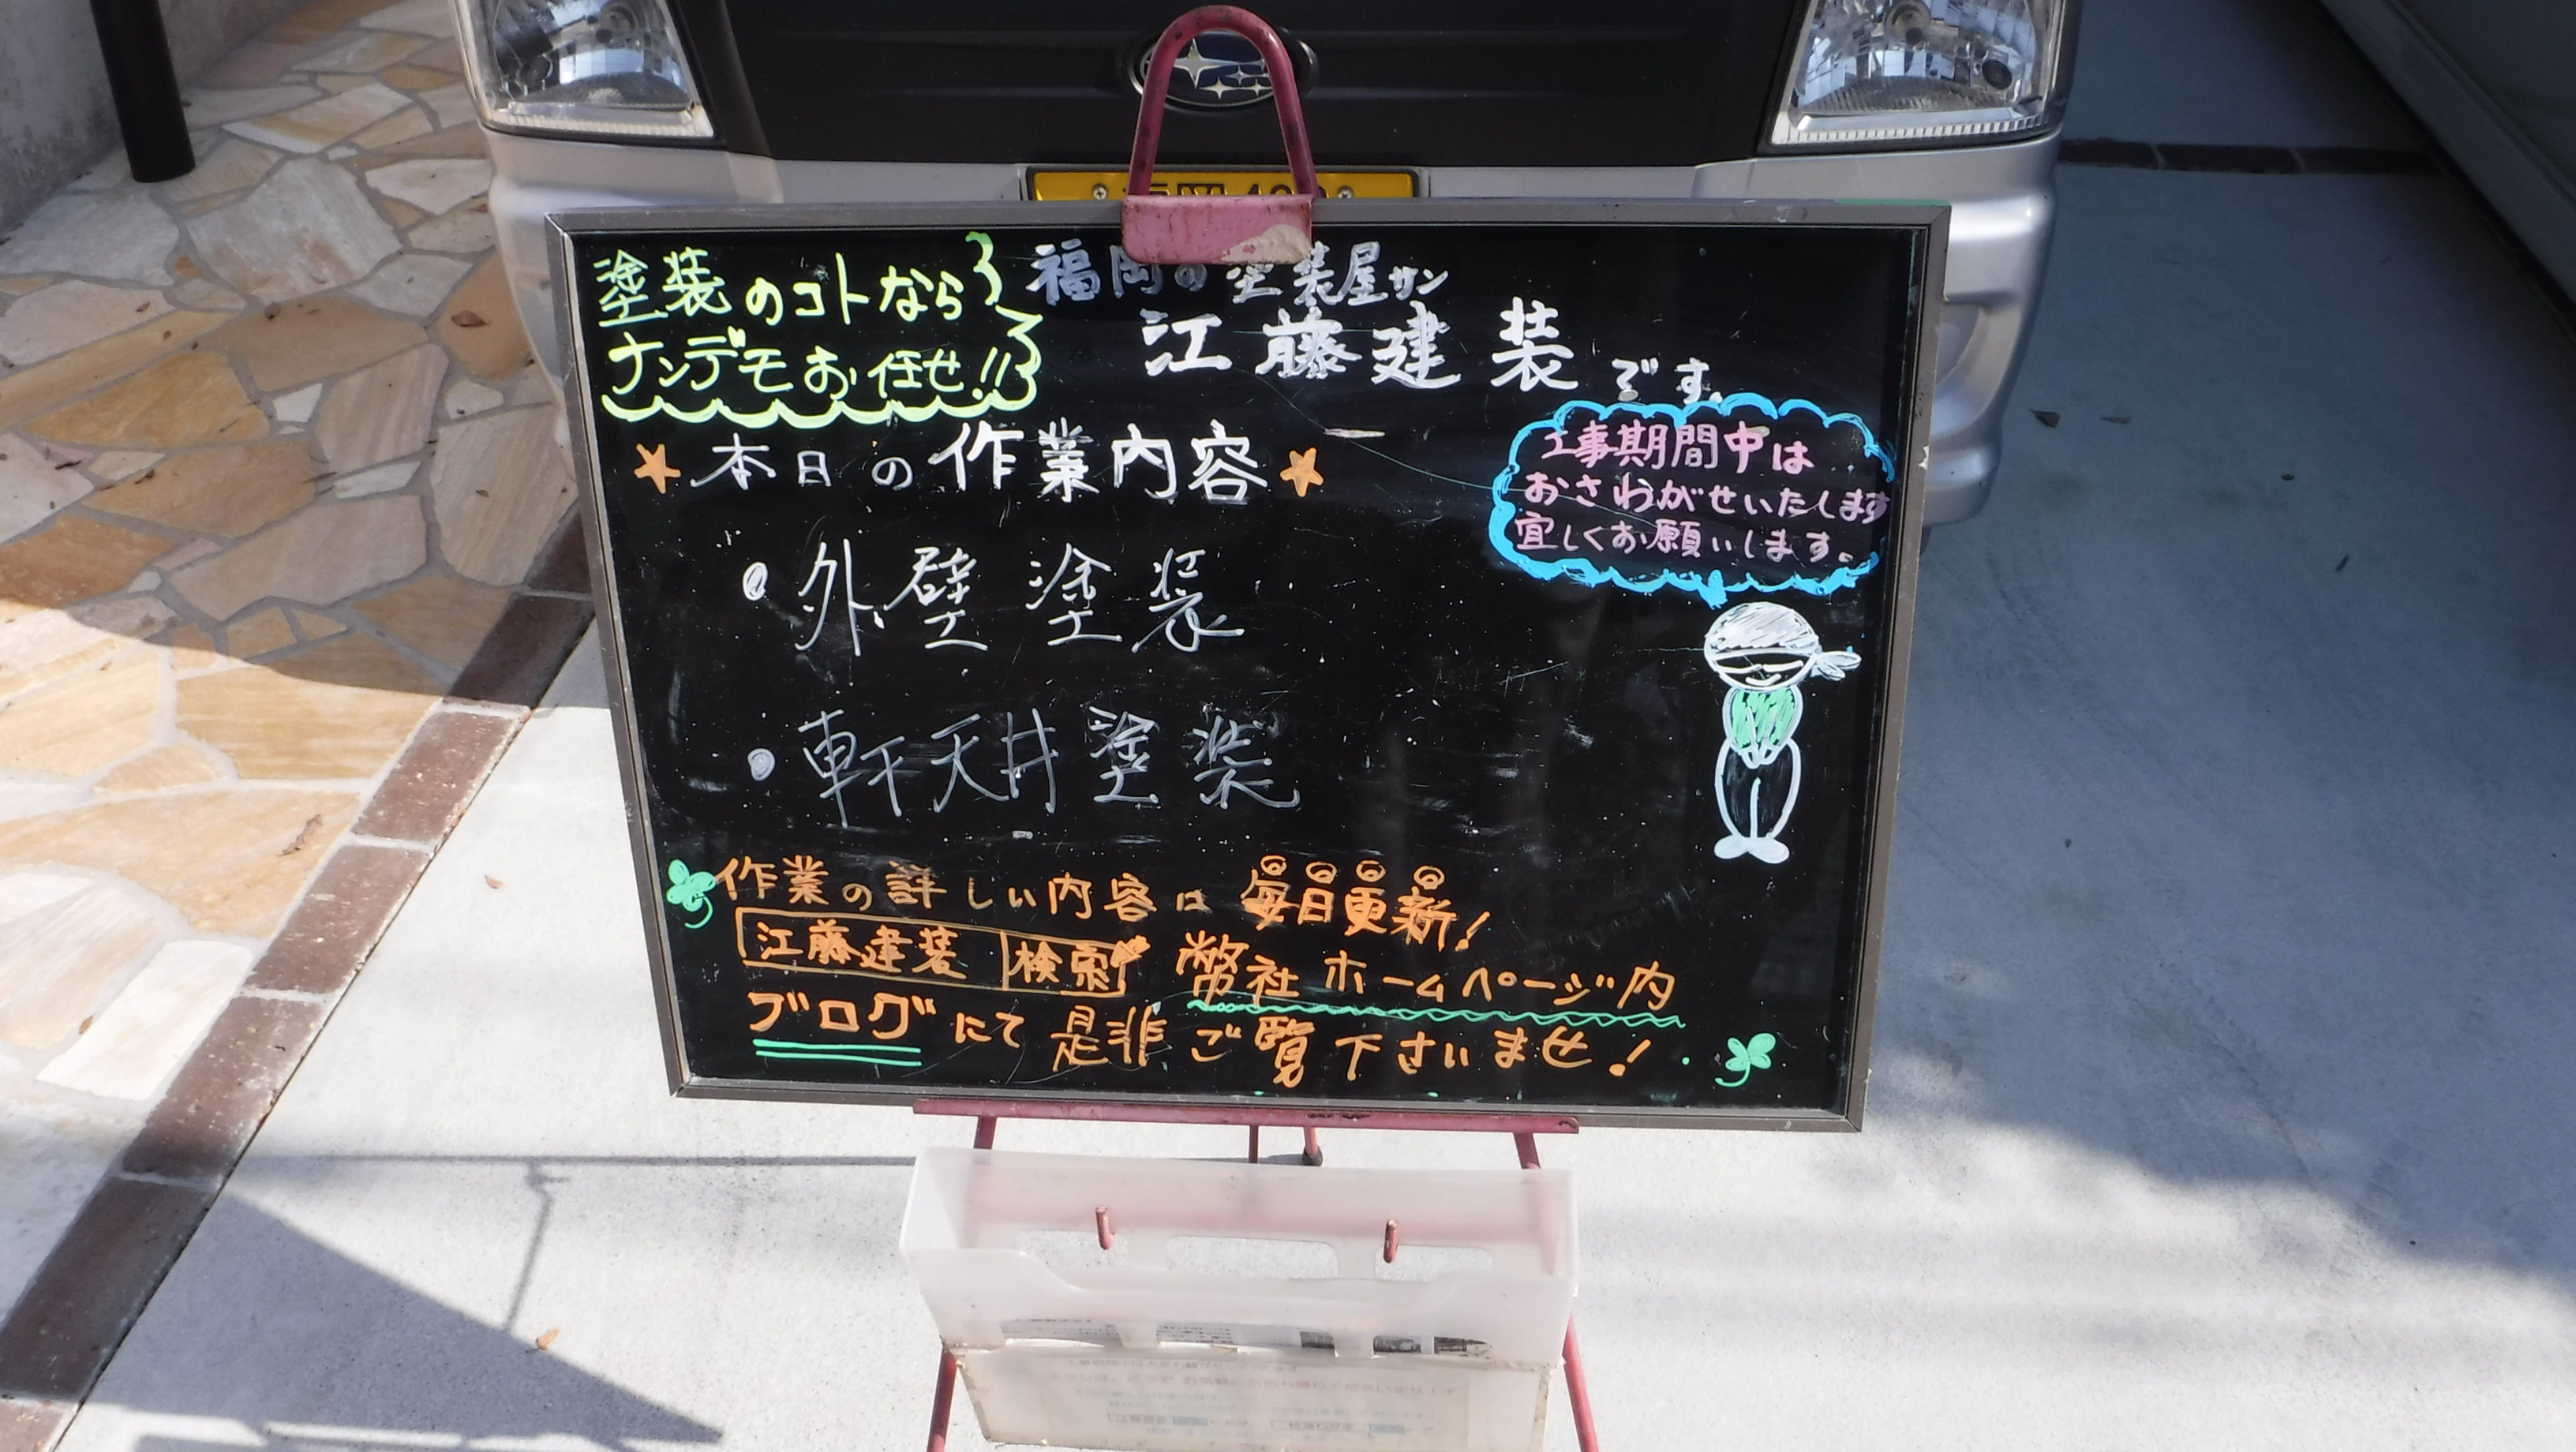 塗装のコトなら
ナンデモお任せ!!
福岡の塗装屋サン
江藤建装です。
本日の作業内容
工事期間中は
おさわがせいたします
宜しくお願いします。
・外壁塗装
・軒天井塗装
作業の詳しい内容は毎日更新!
江藤建装 検索 幣社ホームページ内
ブログにて是非ご覧下さいませ!